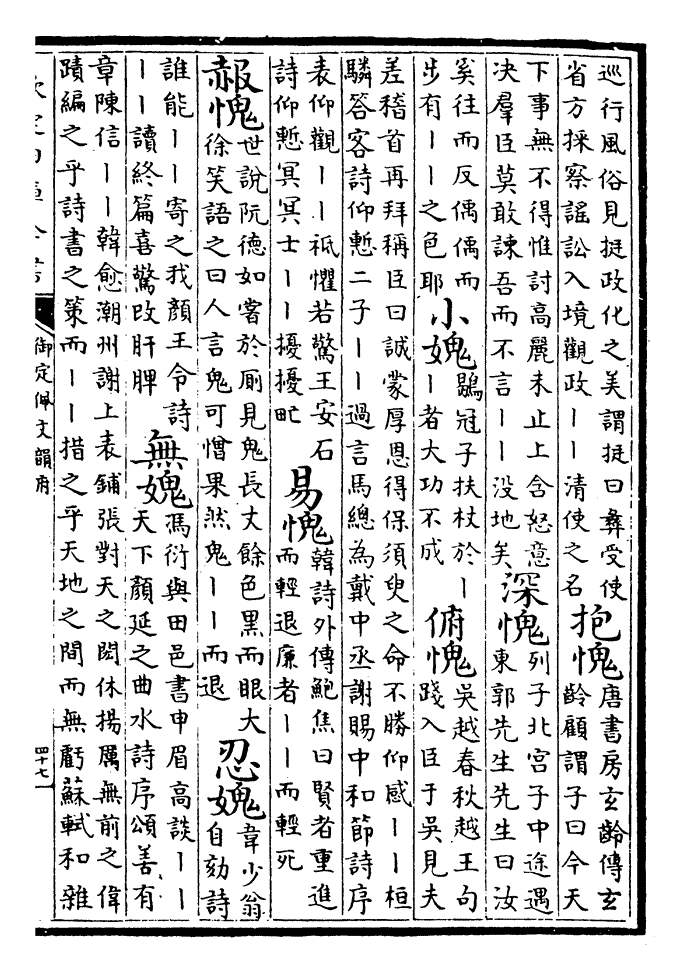 巡行風俗見挺政化之美謂挺曰彝受使
省方採察謠訟入境觀政丨丨清使之名
抱愧
唐書房玄齡傳玄
齡顧謂子曰今天
下事無不得惟討高麗未止上含怒意
决羣臣莫敢諫吾而不言丨丨没地矣
深愧
列子北宮子中途遇
東郭先生先生曰汝
奚往而反偊偊而
步有丨丨之色耶
小媿
鶡冠子扶杖於丨
丨者大功不成
俯愧
吳越春秋越王句
踐入臣于吳見夫
差稽首再拜稱臣曰誠蒙厚恩得保須臾之命不勝仰感丨丨桓
驎答客詩仰慙二子丨丨過言馬總為戴中丞謝賜中和節詩序
表仰觀丨丨祗懼若驚王安石
詩仰慙冥冥士丨丨擾擾甿
易愧
韓詩外傳鮑焦曰賢者重進
而輕退廉者丨丨而輕死
赧愧
世說阮德如嘗於厠見鬼長丈餘色黑而眼大
徐笑語之曰人言鬼可憎果然鬼丨丨而退
忍媿
韋少翁
自劾詩
誰能丨丨寄之我顔王令詩
丨丨讀終篇喜驚改肝脾
無媿
馮衍與田邑書申眉高談丨丨
天下顔延之曲水詩序頌善有
章陳信丨丨韓愈潮州謝上表鋪張對天之閎休揚厲無前之偉
蹟編之乎詩書之策而丨丨措之乎天地之間而無虧蘇軾和雜
欽定四庫全書
御定佩文韻府
四十七